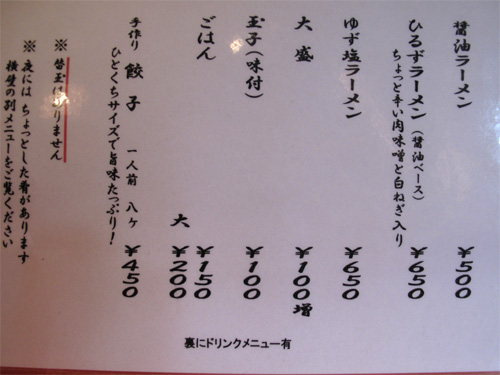 醤油ラーメン ¥500
ひるずラーメン(醤油ベース) ¥650
ちょっと辛い肉味噌と白ねぎ入り
ゆず塩ラーメン ¥650
大盛 ¥100増
玉子(味付) ¥100
ごはん ¥150
大 ¥200
手作り 餃子 一人前 八ヶ ¥450
ひとくちサイズで旨味たっぷり!
※ 替玉はありません
※ 夜には ちょっとした肴があります
横壁の別メニューをご覧ください
裏にドリンクメニュー有